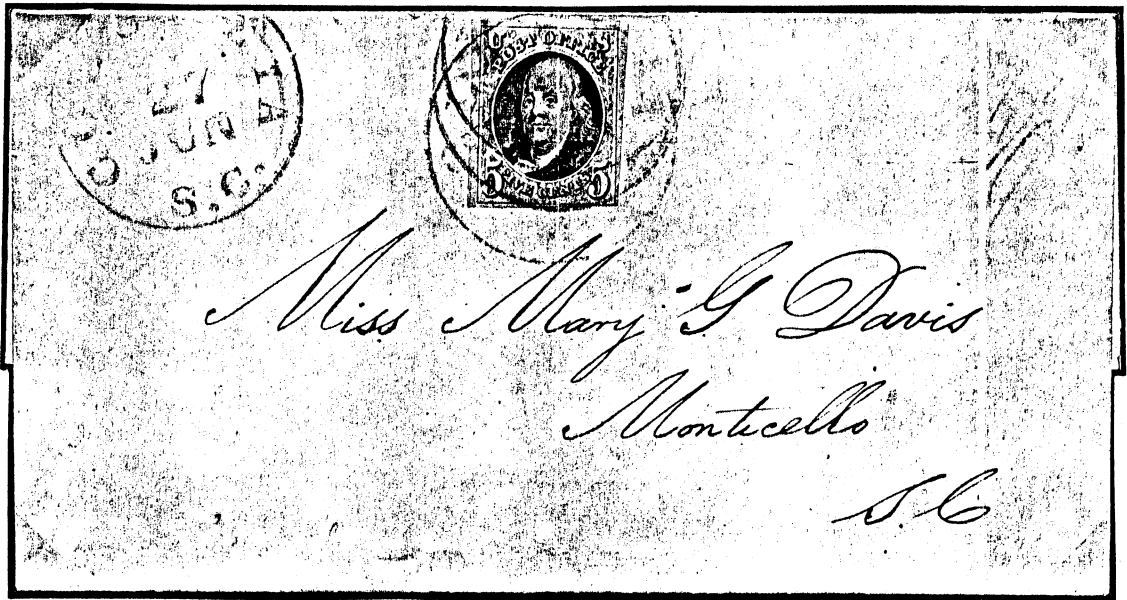 27
JUN
S.C.
POST OFFICE
5 FIVE CENTS
Miss Mary G Davis
Monticello
S. C